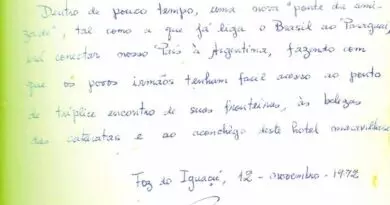 Dentro de pouco tempo, uma nova "ponte da ami-
zade", tal como a que já liga o Brasil ao Paraguai,
irá conectar nosso País à Argentina, fazendo com
que os povos irmãos tenham facil acesso ao ponto
de tríplice encontro de suas fronteiras, às belezas
das cataratas e ao aconchêgo deste hotel maravilhoso.
Foz do Iguaçú, 12 - novembro - 1972